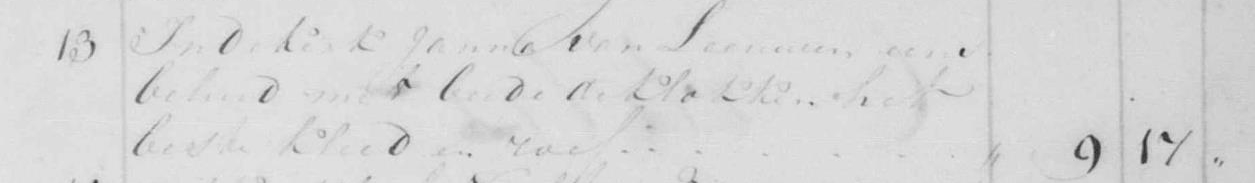 13 In de kerk Janna van Leeuwen een
beluid met beide de klokken het
beste kleed en roef . . . . . . . " 9 17 "